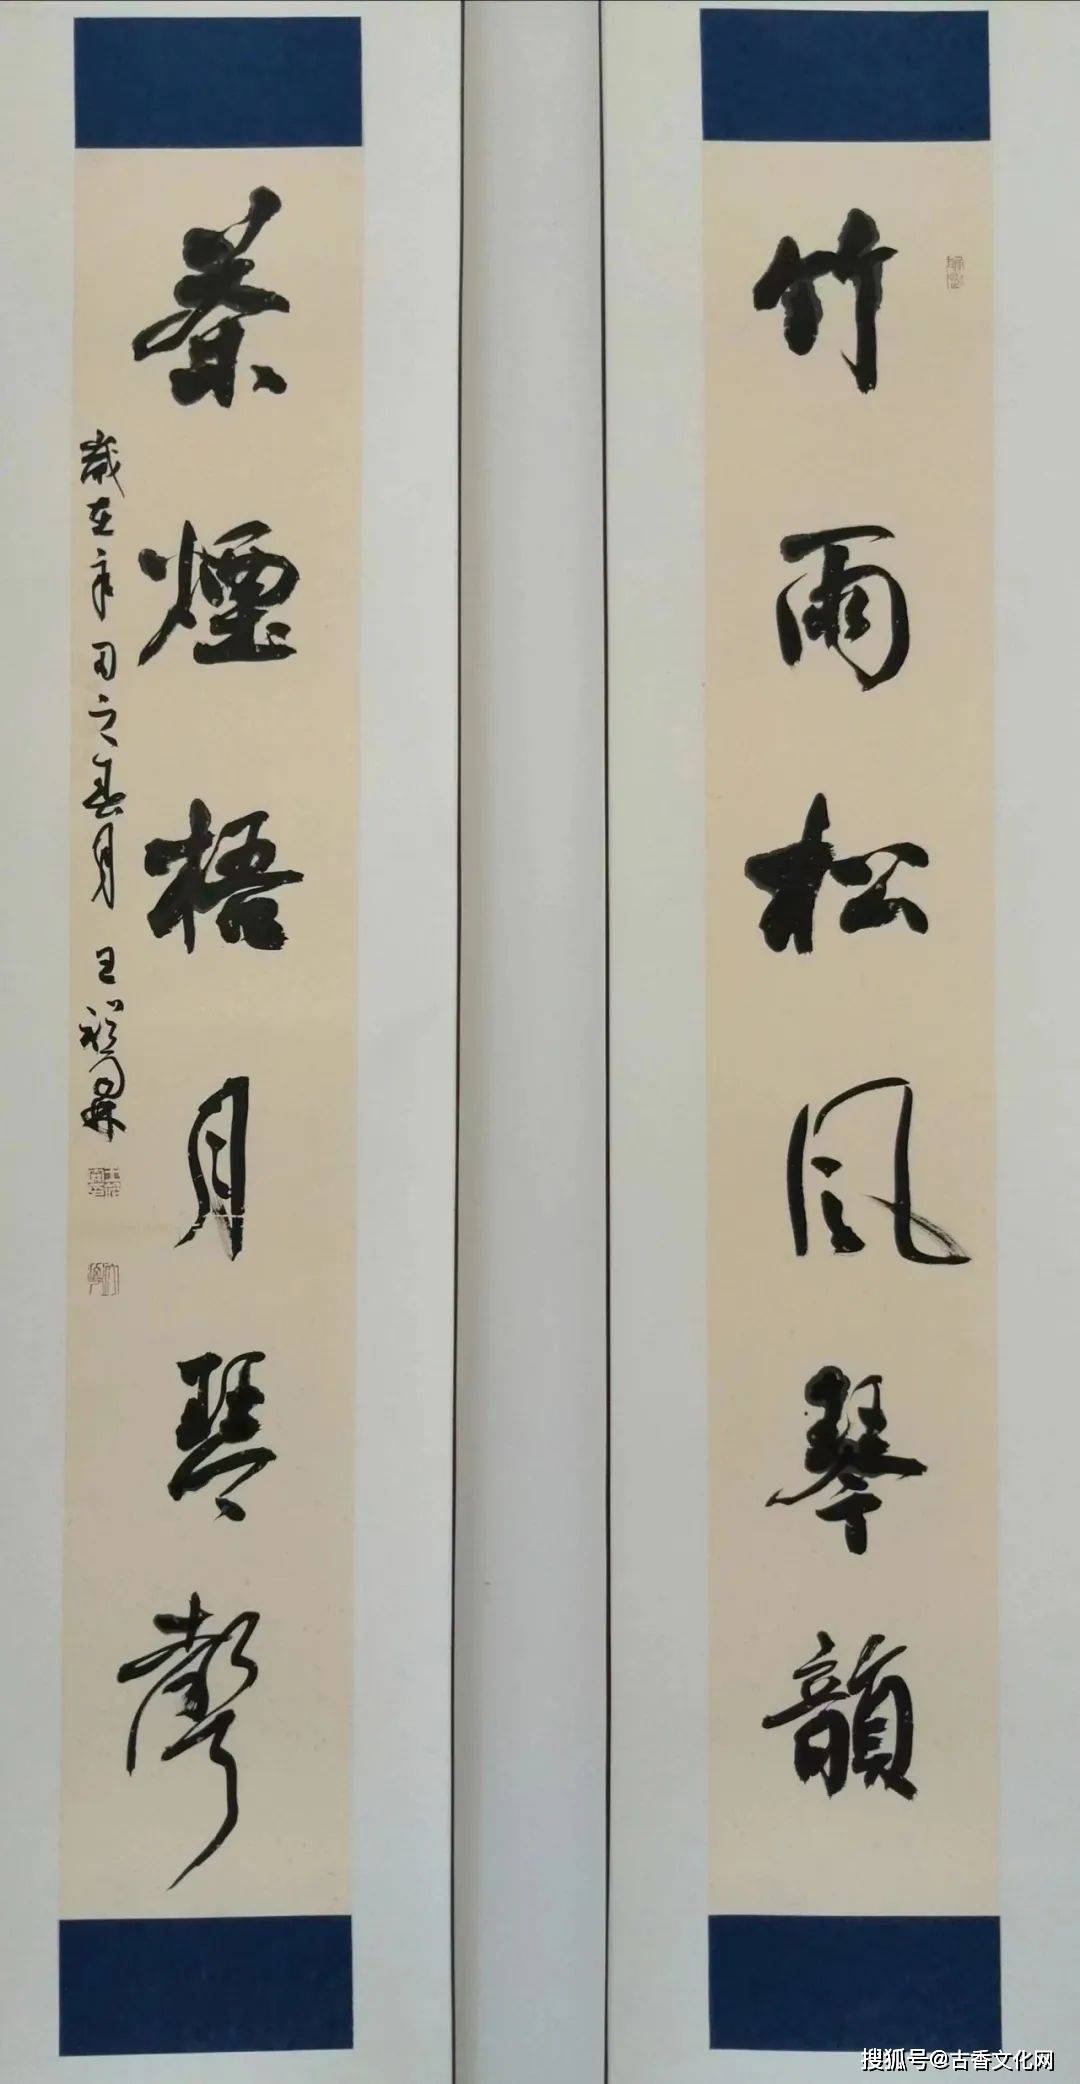 竹雨松風琴韻
茶煙梧月琴聲
歲在辛丑之春月 王
搜狐号@古香文化网